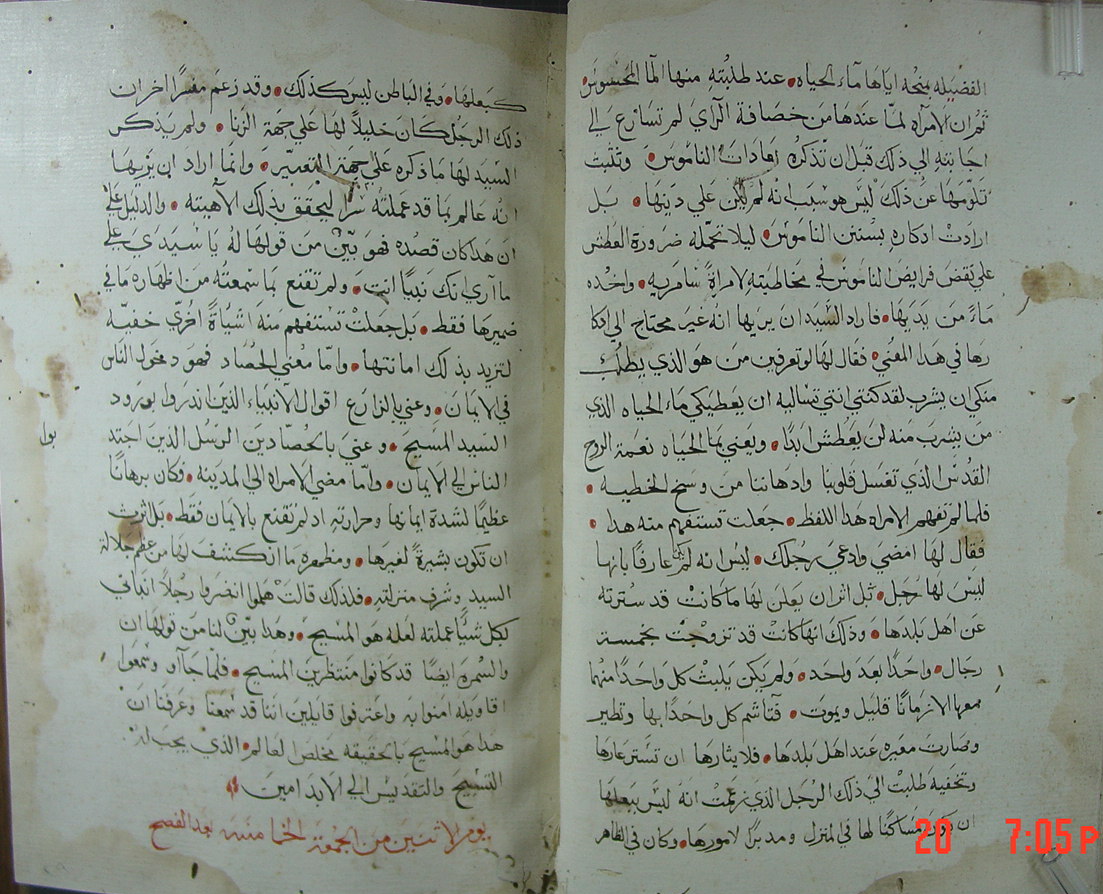 الفضيله يمنحه اياها مآء الحياه • عند طلبته منها المآ المحسوس •
ثم ان الامراه لمّا عندها من خصافة الرآي لم تسارع الي
اجابته الي ذلك قبل ان تذكره بعادات الناموس • وتلبث
تلومها عن ذلك ليس هو سبب انه لم يكن علي دينها • بل
ارادت ادكاره بسنن الناموس • ليلا تحمله ضرورة العطش
علي نقض فرايض الناموس في مخاطبته لامراةً سامريه • واخذه
مآءً من يديها • فاراد السيد ان يريها انه غير محتاج الي ادكا
رها في هذا المعني • فقال لها لو تعرفين من هو الذي يطلب
منكي ان يشرب لقد كنتي انتي تساليه ان يعطيكي مآء الحياه الذي
من يشرب منه لن يعطش ابدًا • ويعني بمآ الحياه نعمة الروح
القدس الذي تغسل قلوبنا واذهاننا من وسخ الخطيه •
فلما لم تفهم الامراه هذا اللفظ • جعلت تستفهم منه هذا •
فقال لها امضي وادعي رجلك • ليس انه لم عارفًا بانها
ليس لها رجل • بل اثر ان يعلن لها ما كانت قد سترته
عن اهل بلدها • وذلك انها كانت قد تزوجت بخمسة
رجال • واحدًا بعد واحد • ولم يكن يلبث كل واحدًا منهما
معها الا زمانًا قليل ويموت • فتآشم كل واحدًا بها وتطير
وصارت معيره عند اهل بلدها • فلايثارها ان تستر عارها
وتخفيه طلبت الي ذلك الرجل الذي زعمت انه ليس ببعلها
ان يكون مساكنًا لها في المنزل ومدبرًا لامورها • وكان في الظاهر
كبعلها • وفي الباطن ليس كذلك • وقد زعم مفسرًا اخر ان
ذلك الرجل كان خليلاً لها علي جهة الزنا • ولم يذكر
السيد لها ما ذكره علي جهة التعيير • وانما اراد ان يريها
انه عالم بما قد عملته سرًا ليحقق بذلك الآهيته • والدليل علي
ان هذا كان قصده فهو بيّن من قولها له يا سيدي علي
ما آري انك نبيًا انت • ولم تقنع بما سمعته من اظهاره ما في
ضميرها فقط • بل جعلت تستفهم منه اشيآءً اخري خفيه
لتزيد بذلك امانتها • وامّا معني الحصاد فهو دخول الناس
في الايمان • وعني بالزارع اقوال الانبياء الذين انذروا بورود
السيد المسيح • وعني بالحصّادين الرسل الذين اجتد
بوا
الناس الي الايمان • وامّا مضي الامراه الي المدينه • فكان برهانًا
عظيمًا لشدة ايمانها وحرارته اد لم تقنع بالايمان فقط • بل اثرت
ان تكون بشيرةً لغيرها • ومظهره ما انكشف لها من عظم جلالة
السيد وشرف منزلته • فلذلك قالت هلموا انضروا رجلاً انباني
بكل شيًّا عملته لعله هو المسيح • وهذا بيّن لنا من قولها ان
والسمره ايضًا قد كانوا منتظرين المسيح • فلمّا جآاو وسمعوا
اقاويله امنوا به واعترفوا قايلين اننا قد سمعنا وعرفنا ان
هذا هو المسيح بالحقيقه مخلص العالم • الذي يجب له
التسبيح والتقديس الي الابد امين
يوم الاتنين من الجمعة الخامسة بعد الفصح
20 7:05 P